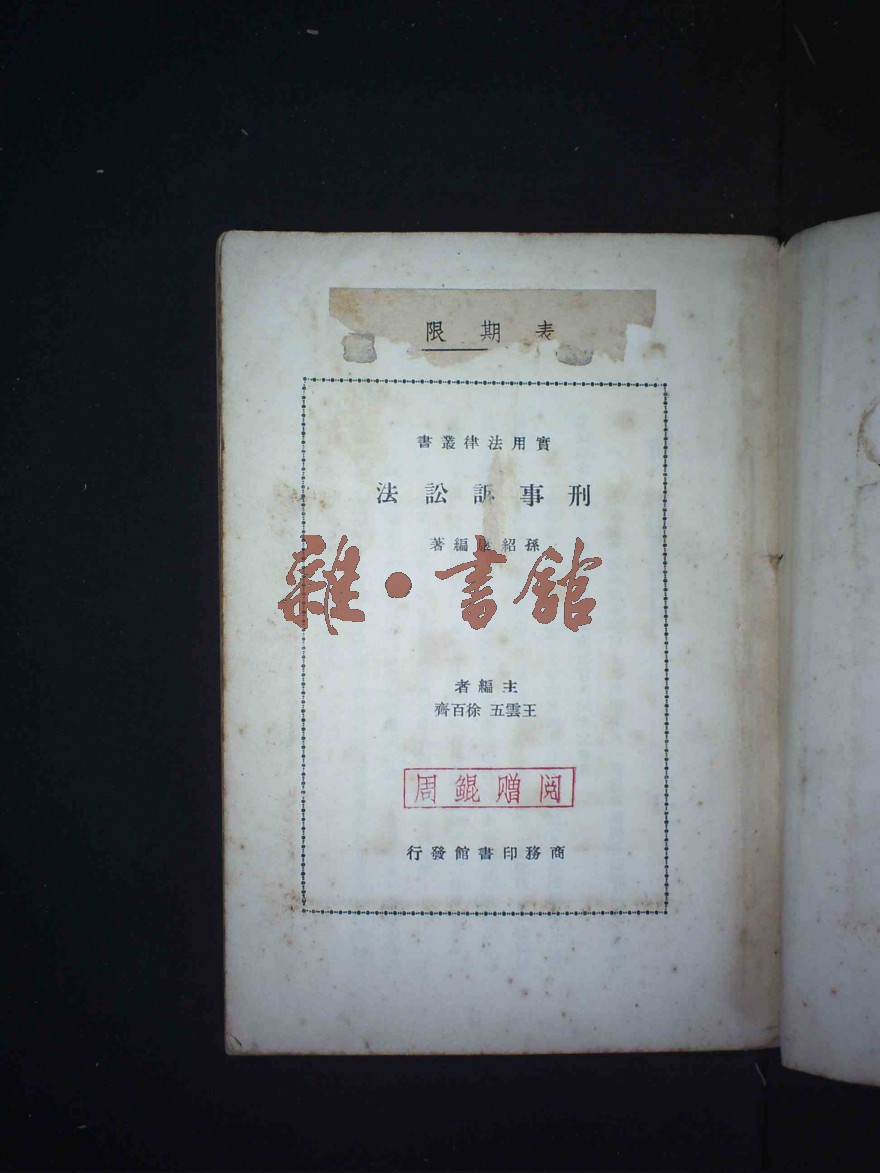 限期表
實用法律叢書
刑事訴訟法
孫紹康編著
雜·書館
主編者
王雲五 徐百齊
周鲲赠阅
商務印書館發行